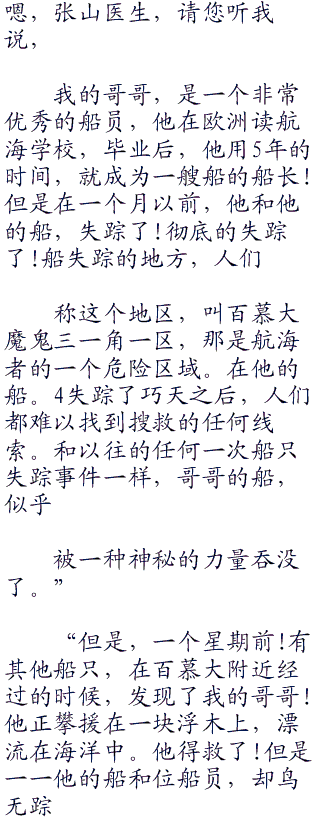 嗯，张山医生，请您听我
说，
我的哥哥，是一个非常
优秀的船员，他在欧洲读航
海学校，毕业后，他用5年的
时间，就成为一艘船的船长!
但是在一个月以前，他和他
的船，失踪了!彻底的失踪
了!船失踪的地方，人们
称这个地区，叫百慕大
魔鬼三一角一区，那是航海
者的一个危险区域。在他的
船。4失踪了巧天之后，人们
都难以找到搜救的任何线
索。和以往的任何一次船只
失踪事件一样，哥哥的船，
似乎
被一种神秘的力量吞没
了。”
“但是，一个星期前!有
其他船只，在百慕大附近经
过的时候，发现了我的哥哥!
他正攀援在一块浮木上，漂
流在海洋中。他得救了!但是
一一他的船和位船员，却鸟
无踪